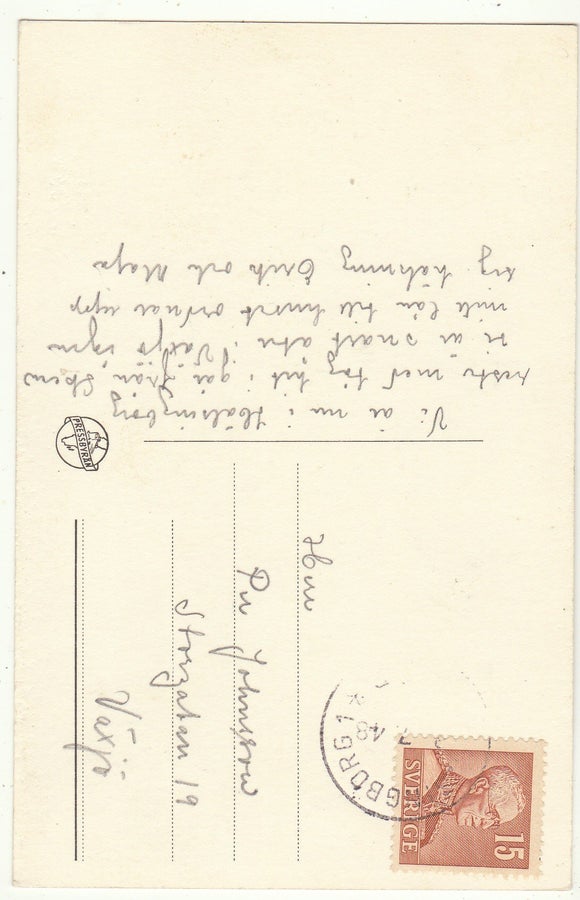 Vi är nu i Hälsingborg
reste med tåg hit i går från Skene
vi är snart åter i Växjö igen
mitt lån till huset ordnar upp
sig hälsning Erik och Maja
PRESSBYRÅN
Herr
Per Johnsson
Storgatan 19
Växjö
GBORG 1 *
48
15
SVERIGE